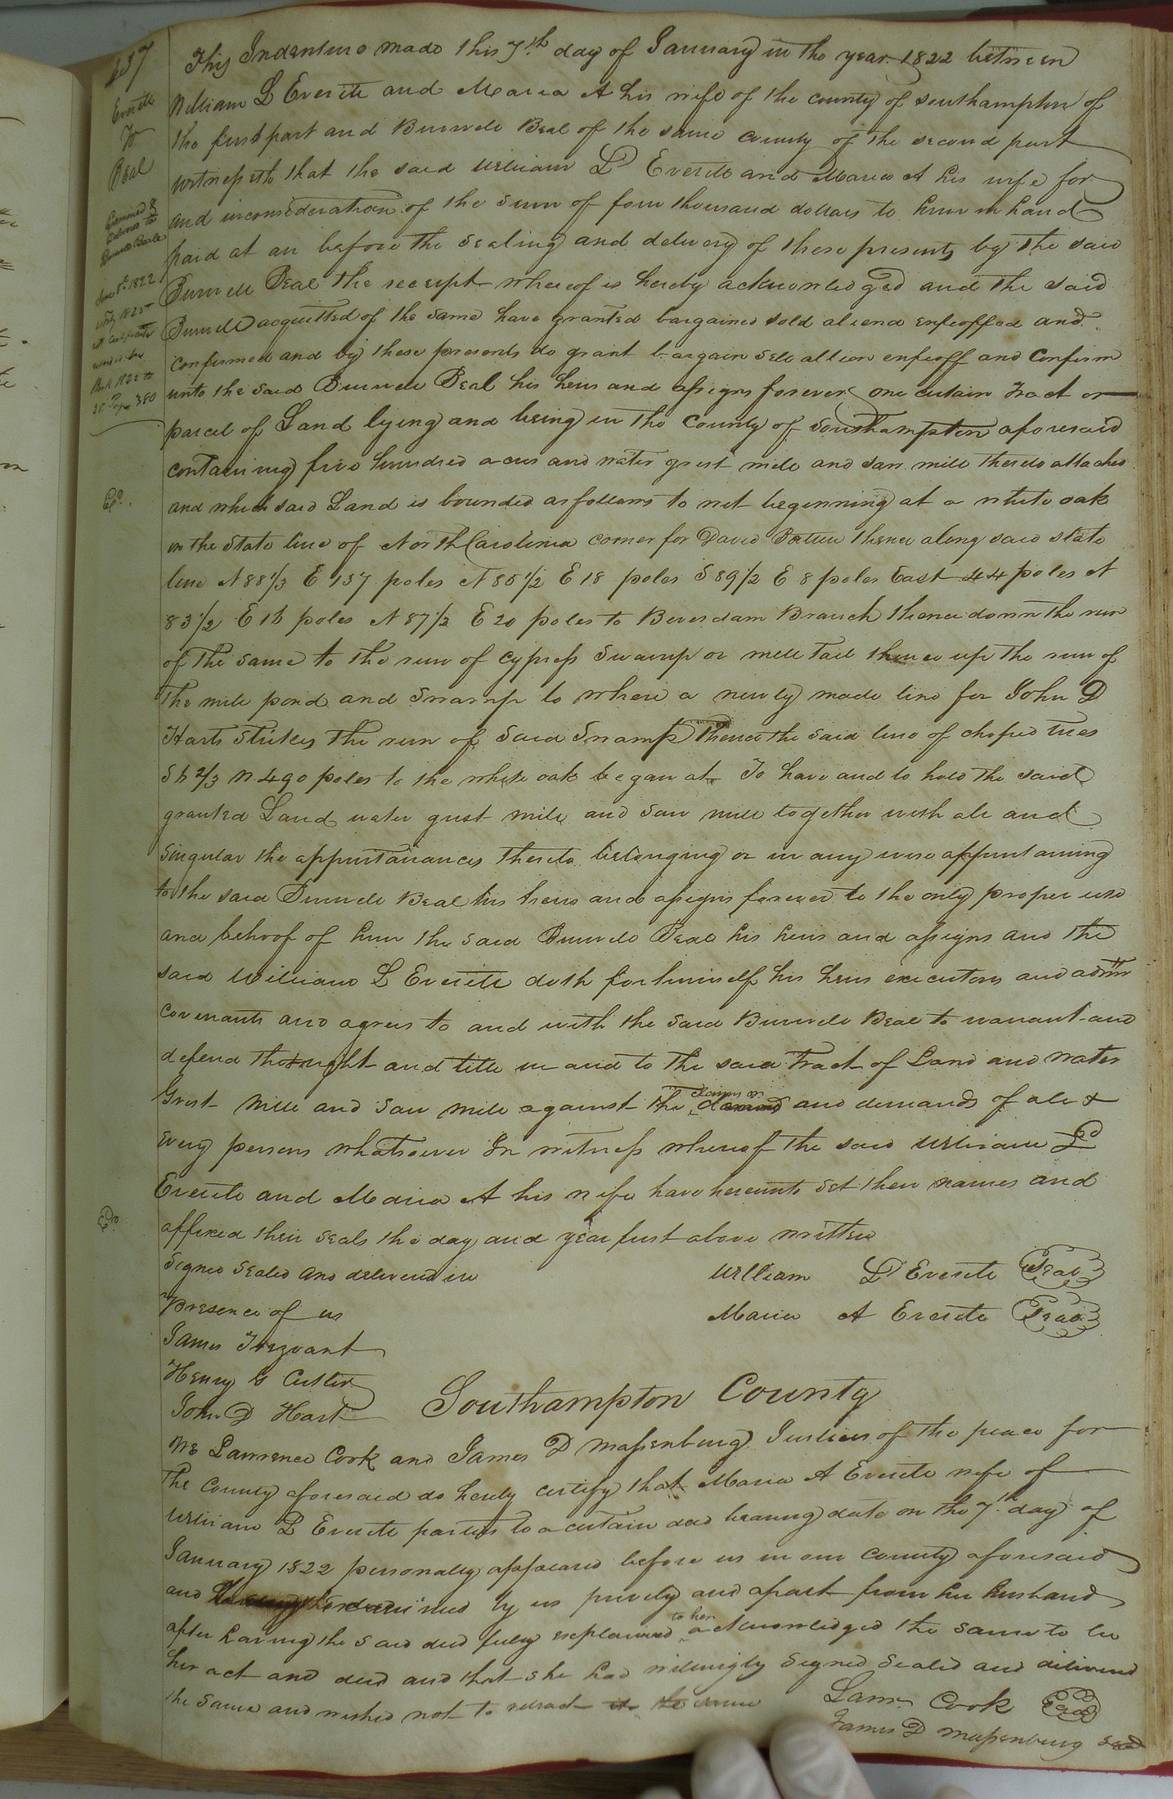 437
Everite
To
Beal
Examined &
Delivered to
Burwell Beale
June 1st 1822
This Indenture made this 7th day of January in the year 1822 between
William L Everite and Maria A his wife of the county of Southampton of
the first part and Burwell Beal of the same county of the second part
witnesseth that the said William D Everite and Maria A his wife for
and inconsideration of the sum of four thousand dollars to him in hand
paid at an before the sealing and delivery of these presents by the said
Burwell Beal the receipt whereof is hereby acknowledged and the said
Burwell acquitted of the same have granted bargained sold aliend enfeoffed and
confirmed and by these presents do grant bargain sell allien enfeoff and confirm
unto the said Burwell Beal his heirs and assigns forever one certain tract or
parcel of Land lying and being in the County of Southampton aforesaid
containing five hundred acres and water grist mill and saw mill thereto attached
and which said Land is bounded as follows to wit beginning at a white oak
on the State line of North Carolinia corner for David thence along said state
line N 88 1/3 E 137 poles N 85 1/2 E 18 poles S 89 1/2 E 8 poles East 44 poles N
83 1/2 E 16 poles N 87 1/2 E 20 poles to Beverdam Branch thence down the run
of the same to the run of cypress Swamp or mill tail thence up the run of
the mill pond and Swamp to where a newly made line for John D
Harts strikes the run of said Swamp thence the said line of choped trees
S 6 2/3 W 490 poles to the white oak began at To have and to hold the said
granted Land water grist mill and saw mill together with all and
singular the appurtainances thereto belonging or in any wise appurtaining
to the said Burwell Beal his heirs and assigns forever to the only proper use
and behoof of him the said Burwell Beal his heirs and assigns and the
said William L Everite doth for himself his heirs executors and admrs
covenants and agrees to and with the said Burwell Beal to warrant and
defend the right and title in and to the said Tract of Land and water
Grist Mill and Saw mill against the claims or and demands of all &
every persons whatsoever In witness whereof the said William D
Everite and Maria A his wife have hereunto set their names and
affixed their seals the day and year first above written
Signed Sealed and delivered in
William D Everite Seal
Presence of us
Maria A Everite Seal
James Trezvant
Henry G Cutler
John D Hart
Southampton County
We Lawrence Cook and James D Massenburg Justices of the peace for
the County aforesaid do hereby certify that Maria A Everite wife of
William D Everite parties to a certain deed bearing date on the 7th day of
January 1822 personally appeared before us in our county aforesaid
and examined by us privily and apart from her husband
after having the said deed fully explained to her acknowledged the same to be
her act and deed and that she had willingly signed sealed and delivered
the same and wished not to retract the same
Lawr Cook Seal
James D Massenburg Seal